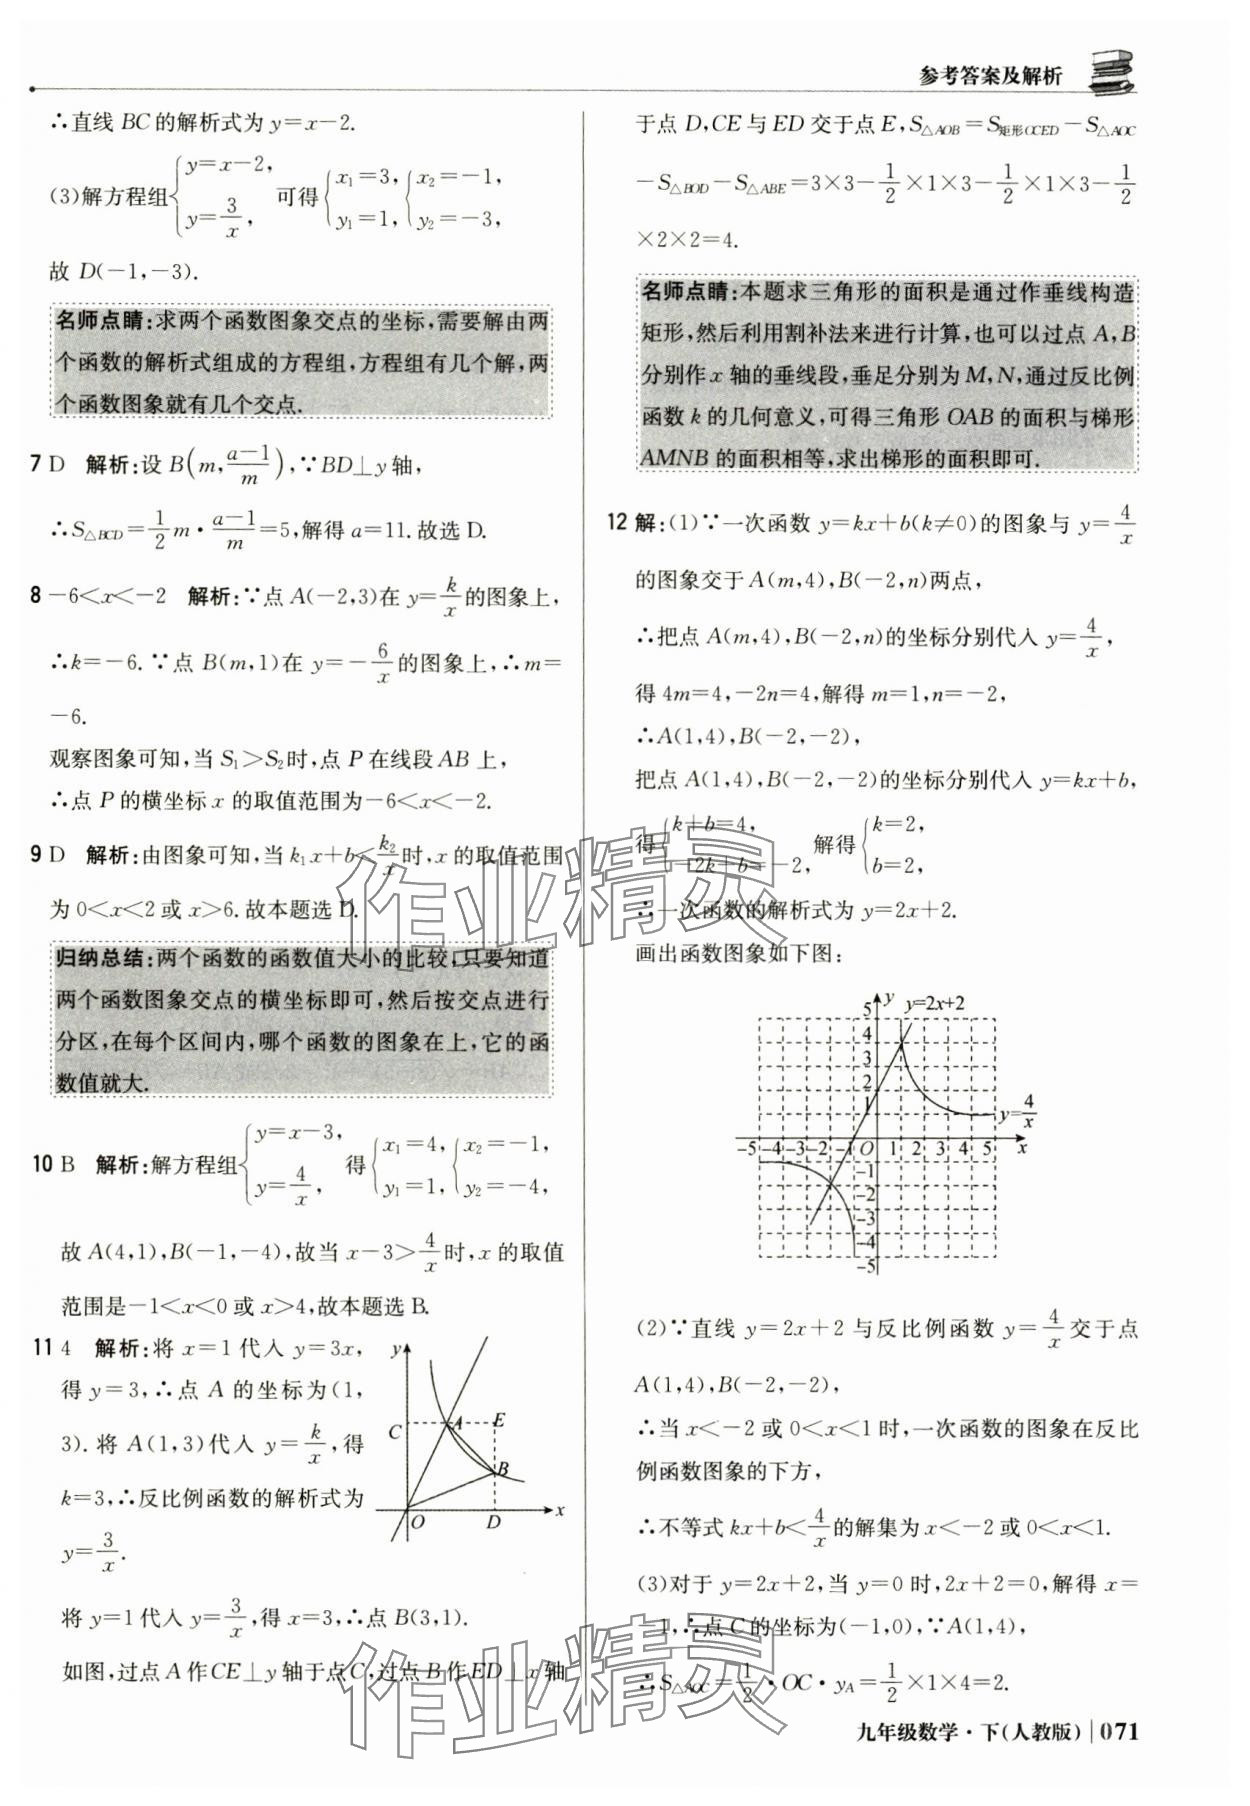 参考答案及解析
∴直线 BC 的解析式为 y=x-2.
(3)解方程组{y=x-2, y=3/x, 可得{x₁=3, y₁=1, {x₂=-1, y₂=-3,
故 D(-1,-3).
名师点睛:求两个函数图象交点的坐标,需要解由两
个函数的解析式组成的方程组,方程组有几个解,两
个函数图象就有几个交点.
7 D 解析:设 B(m,(a-1)/m),∵BD⊥y 轴,
∴S△BCD=1/2 m·(a-1)/m=5,解得 a=11.故选 D.
8 -6<x<-2 解析:∵点 A(-2,3)在 y=k/x的图象上,
∴k=-6.∵点 B(m,1)在 y=-6/x的图象上,∴m=
-6.
观察图象可知,当 S₁>S₂时,点 P 在线段 AB 上,
∴点 P 的横坐标 x 的取值范围为-6<x<-2.
9 D 解析:由图象可知,当 k₁x+b<k₂/x时,x 的取值范围
为 0<x<2 或 x>6.故本题选 D.
归纳总结:两个函数的函数值大小的比较,只要知道
两个函数图象交点的横坐标即可,然后按交点进行
分区,在每个区间内,哪个函数的图象在上,它的函
数值就大.
10 B 解析:解方程组{y=x-3, y=4/x, 得{x₁=4, y₁=1, {x₂=-1, y₂=-4,
故 A(4,1),B(-1,-4),故当 x-3>4/x时,x 的取值
范围是-1<x<0 或 x>4,故本题选 B.
11 4 解析:将 x=1 代入 y=3x,
得 y=3,∴点 A 的坐标为(1,
3).将 A(1,3)代入 y=k/x,得
k=3,∴反比例函数的解析式为
y=3/x.
y
C
A
E
B
O
D
x
将 y=1代入 y=3/x,得 x=3,∴点 B(3,1).
如图,过点 A 作CE⊥y 轴于点C,过点 B 作ED⊥x 轴
于点 D,CE 与 ED 交于点 E,S△AOB=S矩形OCED-S△AOC
-S△BOD-S△ABE=3×3-1/2×1×3-1/2×1×3-1/2
×2×2=4.
名师点睛:本题求三角形的面积是通过作垂线构造
矩形,然后利用割补法来进行计算,也可以过点 A,B
分别作 x 轴的垂线段,垂足分别为 M,N,通过反比例
函数 k 的几何意义,可得三角形 OAB 的面积与梯形
AMNB 的面积相等,求出梯形的面积即可.
12 解:(1)∵一次函数 y=kx+b(k≠0)的图象与 y=4/x
的图象交于 A(m,4),B(-2,n)两点,
∴把点 A(m,4),B(-2,n)的坐标分别代入 y=4/x,
得 4m=4,-2n=4,解得 m=1,n=-2,
∴A(1,4),B(-2,-2),
把点 A(1,4),B(-2,-2)的坐标分别代入 y=kx+b,
得{k+b=4, -2k+b=-2, 解得{k=2, b=2,
∴一次函数的解析式为 y=2x+2.
画出函数图象如下图:
y
y=2x+2
5
4
3
2
1
y=4/x
-5 -4 -3 -2 -1 O 1 2 3 4 5 x
-1
-2
-3
-4
-5
(2)∵直线 y=2x+2 与反比例函数 y=4/x交于点
A(1,4),B(-2,-2),
∴当 x<-2 或 0<x<1 时,一次函数的图象在反比
例函数图象的下方,
∴不等式 kx+b<4/x的解集为 x<-2 或 0<x<1.
(3)对于 y=2x+2,当 y=0 时,2x+2=0,解得 x=
-1,∴点 C 的坐标为(-1,0),∵A(1,4),
∴S△AOC=1/2·OC·yA=1/2×1×4=2.
九年级数学·下(人教版) 071
作业精灵
作业精灵